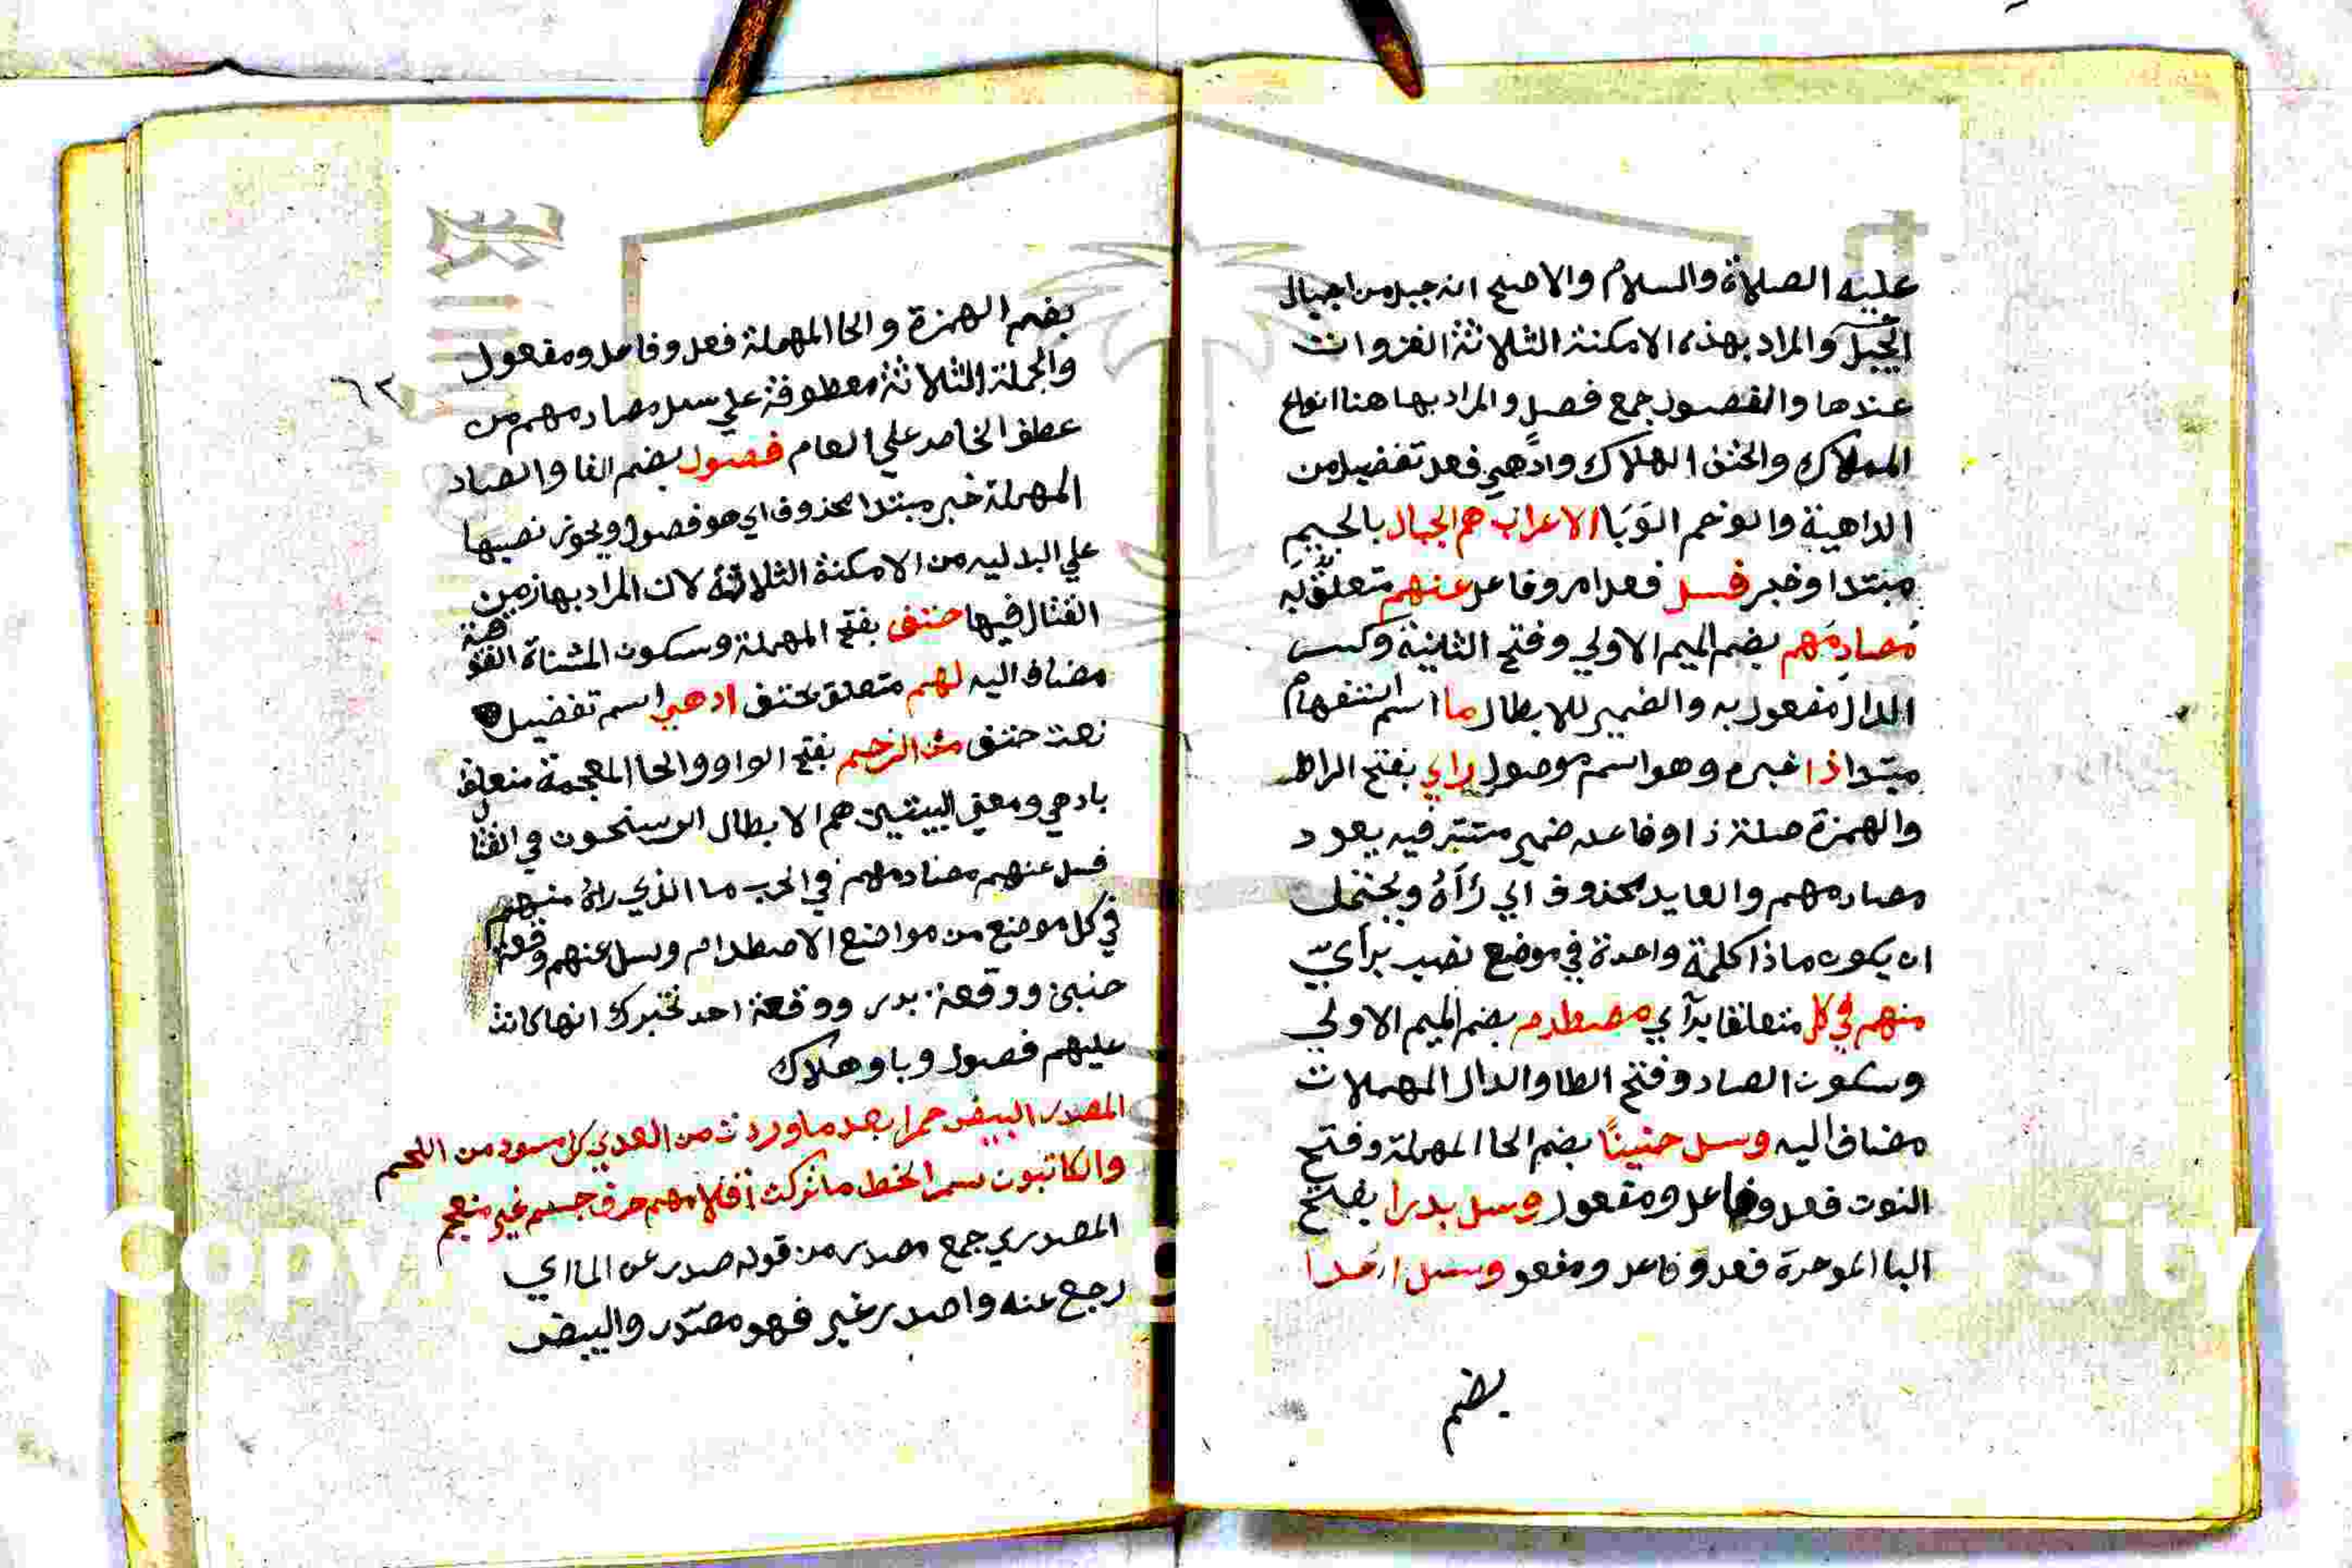 عليه الصلاة والسلام والاصح انه جبل من اجبال
الجبل والمراد بهذه الامكنة الثلاثة الغزوات
عندها والفصول جمع فصل والمراد بها هنا انواع
الهلاك والحتف الهلاك وادهي فعل تفضيل من
الداهية والوخم الوَبَا الاعراب هم الجبال بالجيم
مبتدا وخبر فسل فعل امر وفاعل عنهم متعلق به
مُصادِمَهم بضم الميم الاولي وفتح الثانية وكسر
الدال مفعول به والضمير للابطال ما اسم استفهام
مبتدا ذا خبره وهو اسم موصول راي بفتح الرا
والهمزة صلة ذا وفاعله ضمير مستتر فيه يعود
مصادمهم والعايد محذوف اي رَآهُ ويحتمل
ان يكون ماذا كلمة واحدة في موضع نصب برآي
منهم في كل متعلقا برآي مصطدم بضم الميم الاولي
وسكون الصاد وفتح الطا والدال المهملات
مضاف اليه وسل حنينًا بضم الحا المهملة وفتح
النون فعل وفاعل ومفعول وسل بدرا بفتح
البا الموحدة فعل وفاعل ومفعو وسل احُدا
بضم
بضم الهمزة والحا المهملة فعل وفاعل ومفعول
والجملة الثلاثة معطوفة علي سل مصادمهم من
عطف الخاص علي العام فصول بضم الفا والصاد
المهملة خبر مبتدا محذوف اي هو فصول ويجوز نصبها
علي البدليه من الامكنة الثلاثة لان المراد بها زمن
القتال فيها حتف بفتح المهملة وسكون المثناة الفوقية
مضاف اليه لهم متعلق بحتف ادهي اسم تفضيل
نعت حتف من الوخم بفتح الواو والخا المعجمة متعلق
بادهي ومعني البيتين هم الابطال في القتال
فسل عنهم مصادمهم في الحرب ما الذي راه منهم
في كل موضع من مواضع الاصطدام وسل عنهم وقعة
حنين ووقعة بدر ووقعة احد تخبرك انها كانت
عليهم فصول وبا وهلاك
المصدر البيض حمرا بعد ما وردت من العدي كل مسود من اللحم
والكاتبون بسمر الخط ما تركت اقلامهم حرف جسم غير منعجم
المصدري جمع مصدر من قوله صدر عن الما اي
رجع عنه واصدر غير فهو مصدر والبيض
٦٢